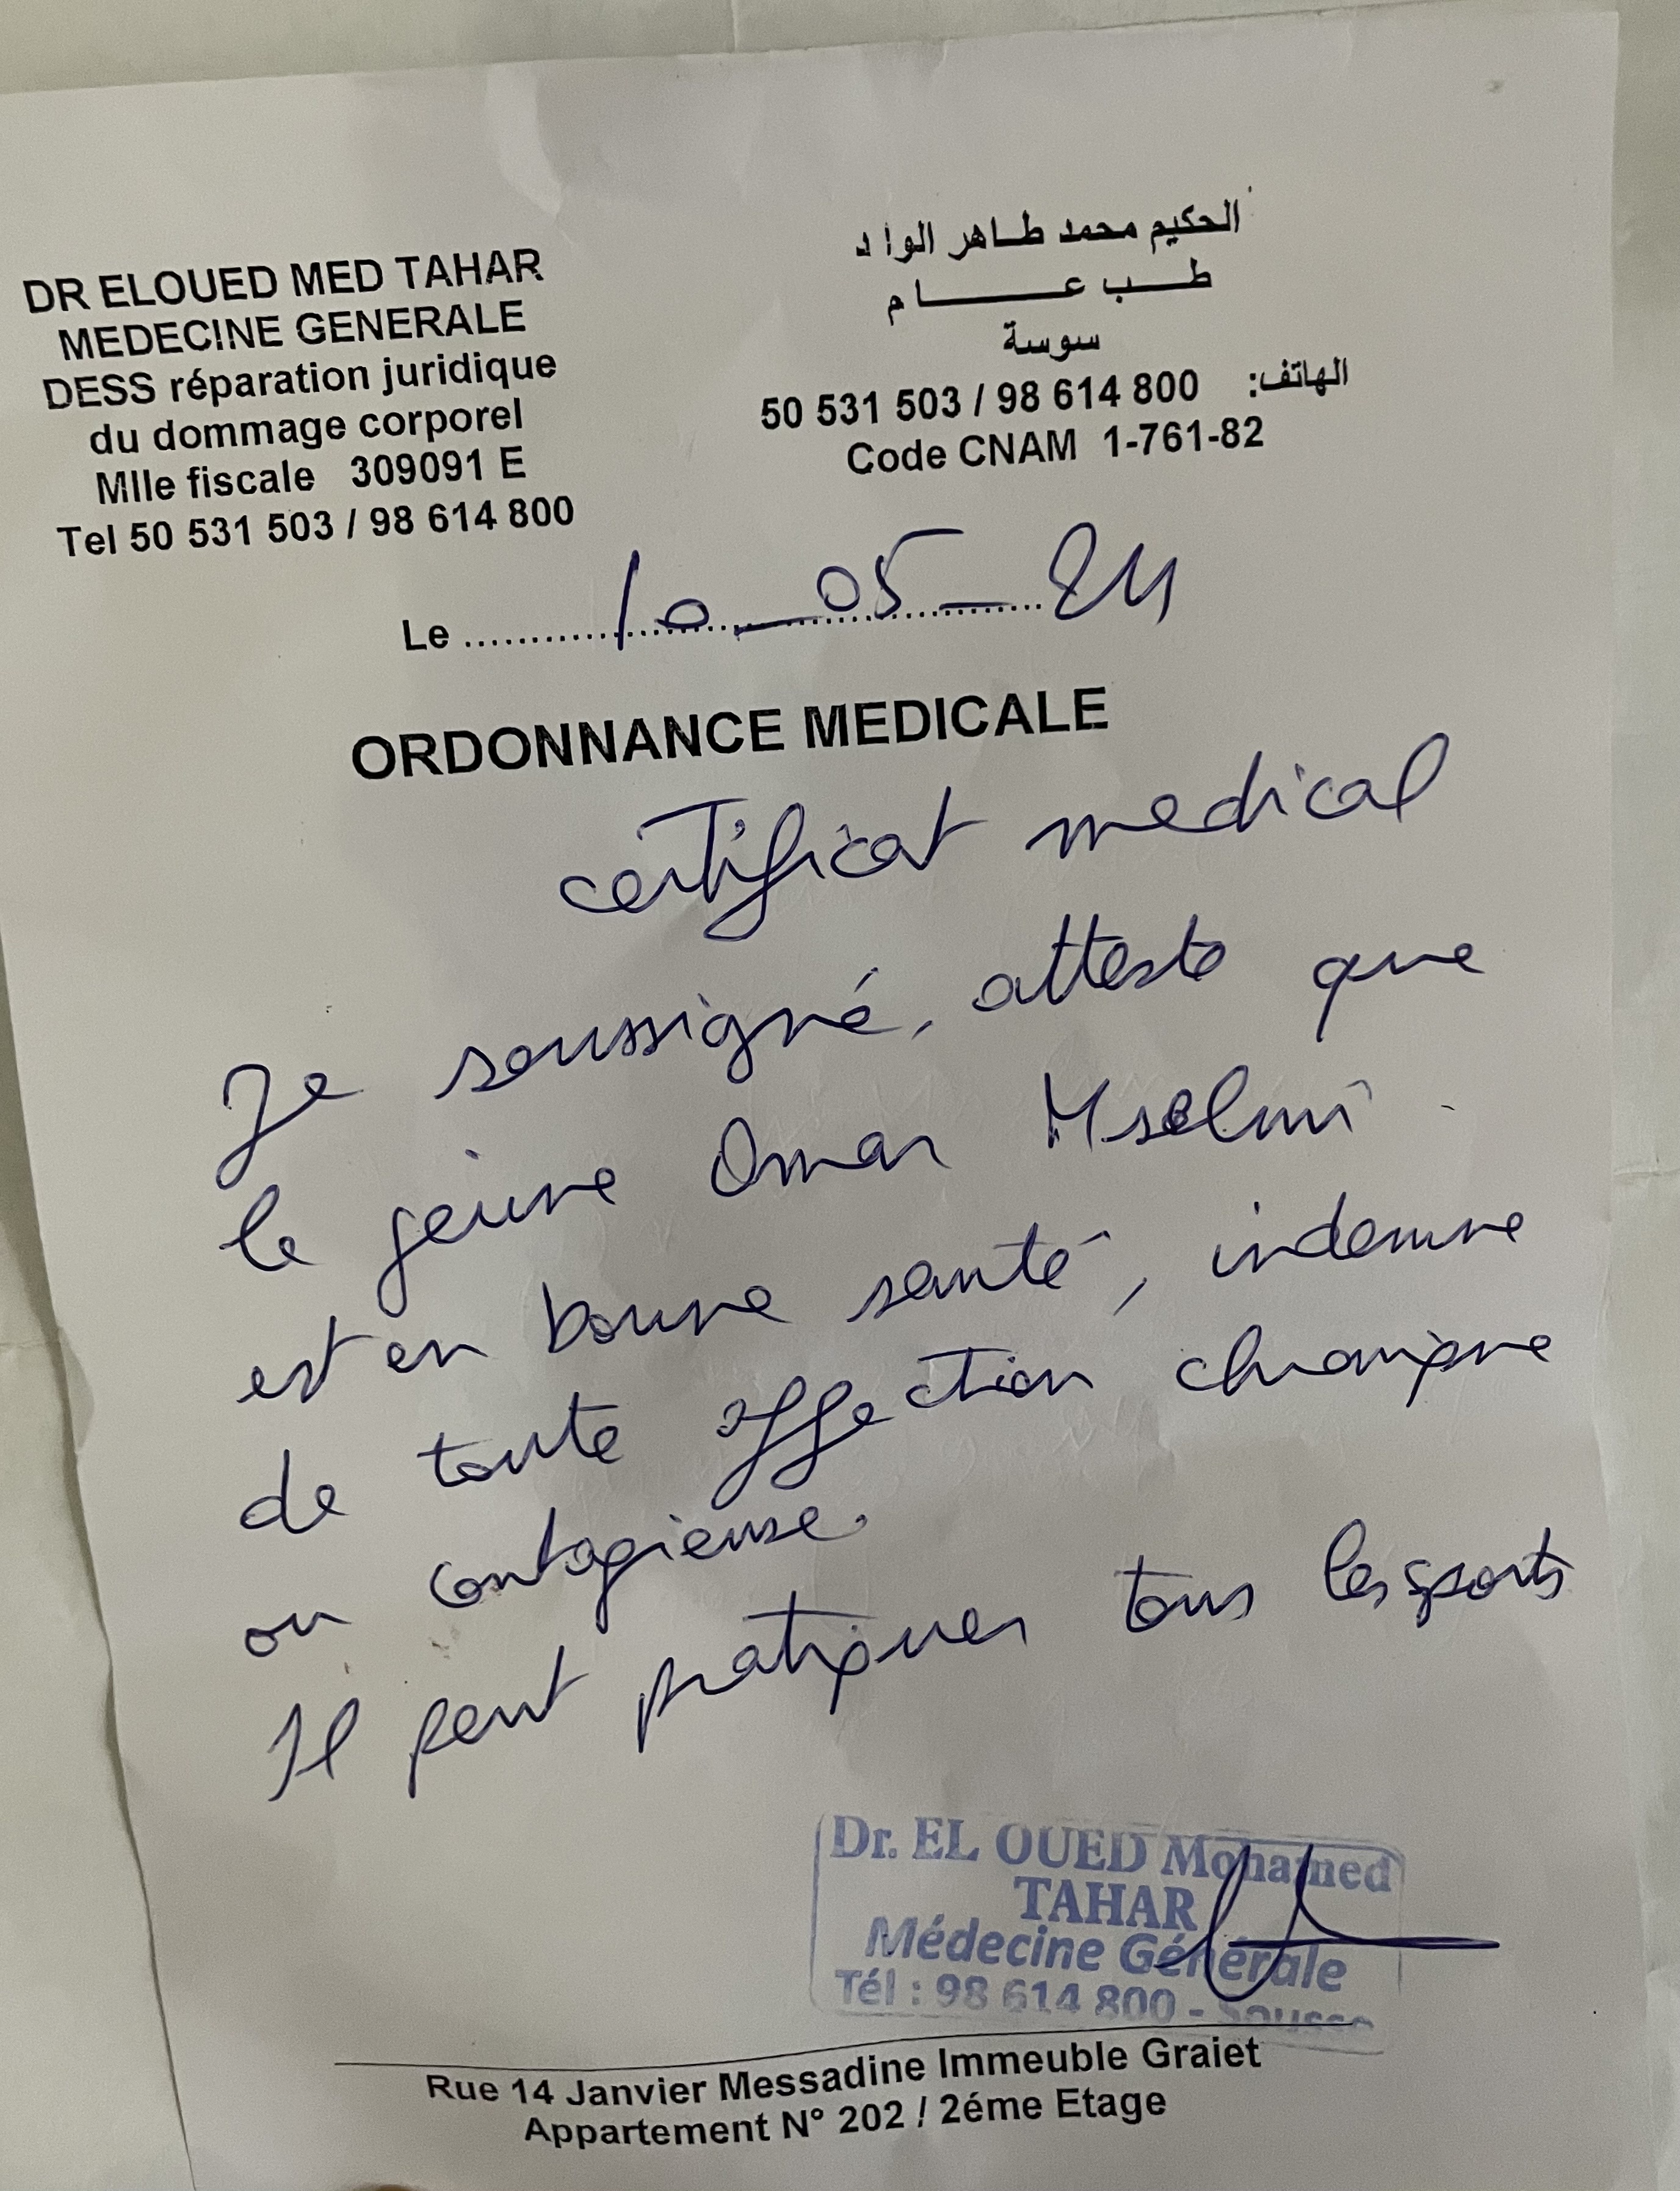 DR ELOUED MED TAHAR
MEDECINE GENERALE
DESS réparation juridique
du dommage corporel
Mlle fiscale 309091 E
Tel 50 531 503 / 98 614 800
الحكيم محمد طاهر الواد
طب عام
سوسة
الهاتف: 50 531 503 / 98 614 800
Code CNAM 1-761-82
Le 10-05-24
ORDONNANCE MEDICALE
certificat medical
Je soussigné, atteste que
le jeune Omar Mselmi
est en bonne santé, indemne
de toute affection chronique
ou contagieuse.
Il peut pratiquer tous les sports
Dr. EL OUED Mohamed
TAHAR
Médecine Générale
Tél : 98 614 800 - Sousse
Rue 14 Janvier Messadine Immeuble Graiet
Appartement N° 202 / 2éme Etage